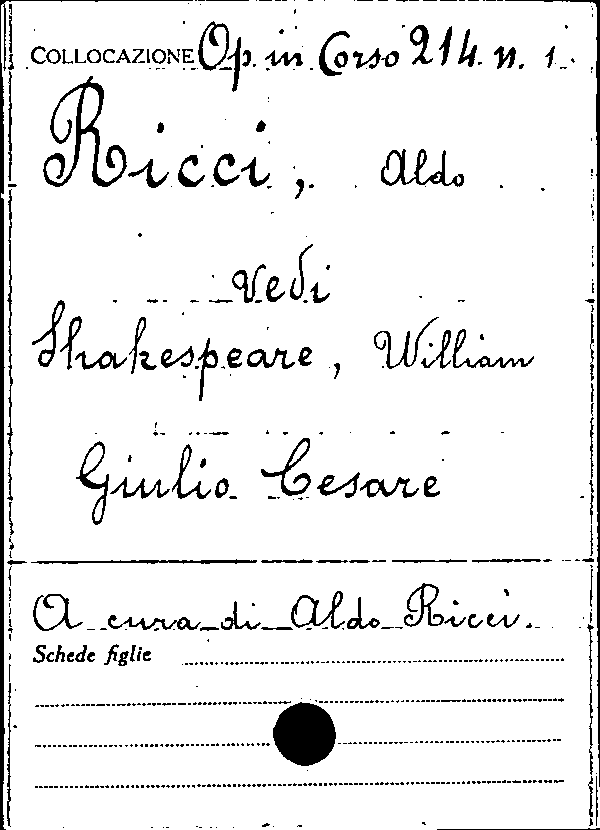 COLLOCAZIONE Op. in Corso 214. n. 1.
Ricci, Aldo
vedi
Shakespeare, William
Giulio Cesare
A cura di Aldo Ricci.
Schede figlie